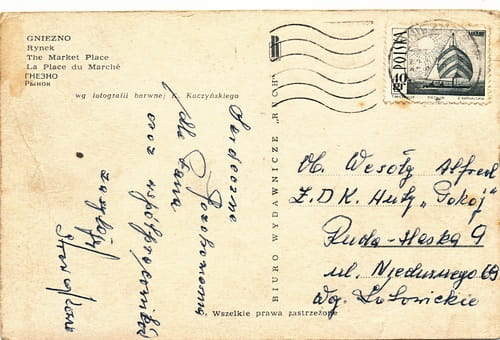 GNIEZNO
Rynek
The Market Place
La Place du Marché
ГНЕЗНО
Рынок
wg fotografii barwnej K. Kaczyńskiego
Serdeczne
Pozdrowienia
dla Pana
oraz współpracowników
BIURO WYDAWNICZE „RUCH"
POLSKA
10 gr
Ob. Wesoły Alfred
Z.D.K. Huty „Pokój"
Ruda-Śląska 9
ul. Niedurnego 69
Wszelkie prawa zastrzeżone